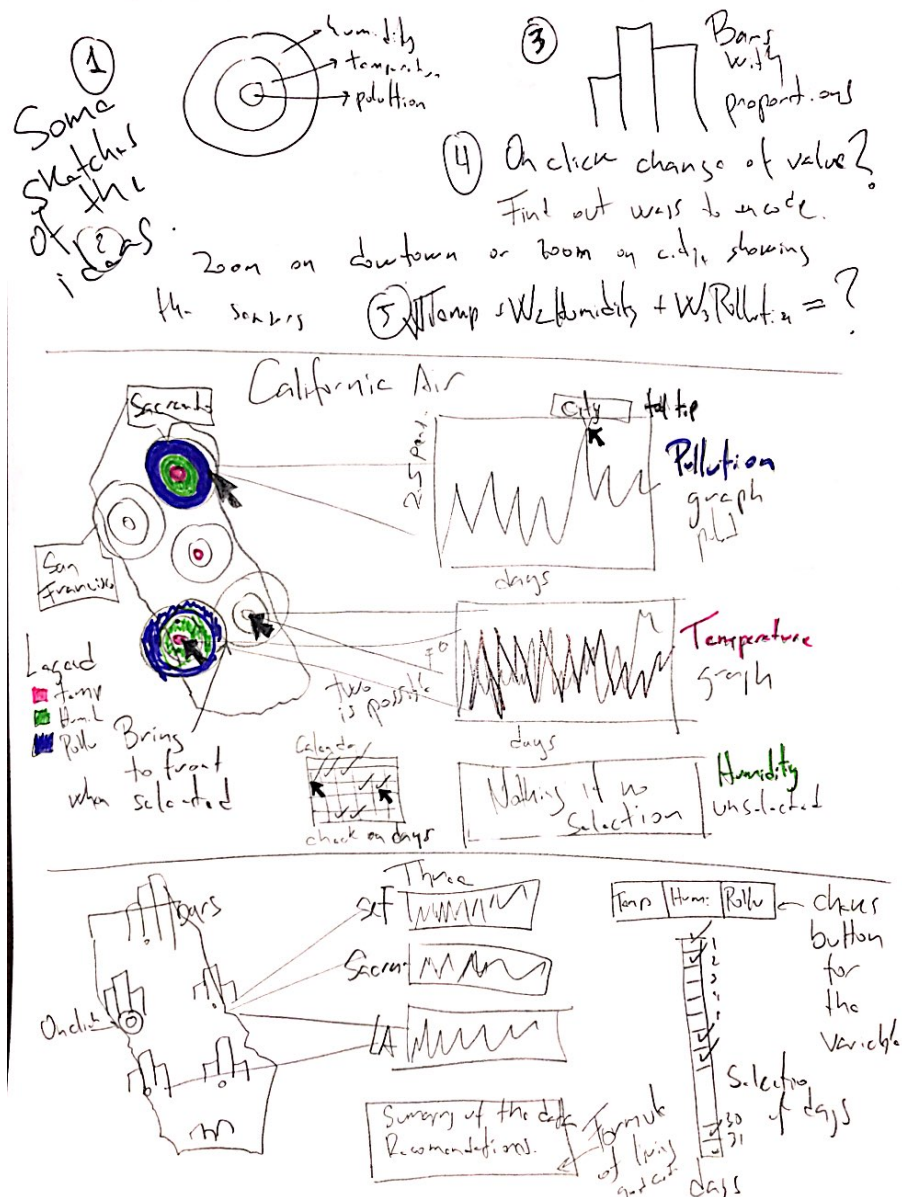 1
Some
sketches
of the
ideas.
humidity
temperature
polution
3
Bars
with
proportions
4 On click change of value?
Find out ways to encode.
2
Zoom on downtown or zoom on city showing
the sensors
5 W Temp + W2 Humidity + W3 Pollution = ?
California Air
Sacramento
San
Francisco
City
tool tip
2.5 part.
days
Pollution
graph
F°
days
Temperature
graph
two
is possible
Legend
temp
Humid
Pollu
Bring
to front
when selected
Calendar
check on days
Nothing if no
selection
Humidity
unselected
bars
On click
Three
SF
Sacram
LA
Temp Humi Pollu
change
button
for
the
variable
1
2
3
4
30
31
Selection
of days
days
Summary of the data
Recomendations.
Formula
of living